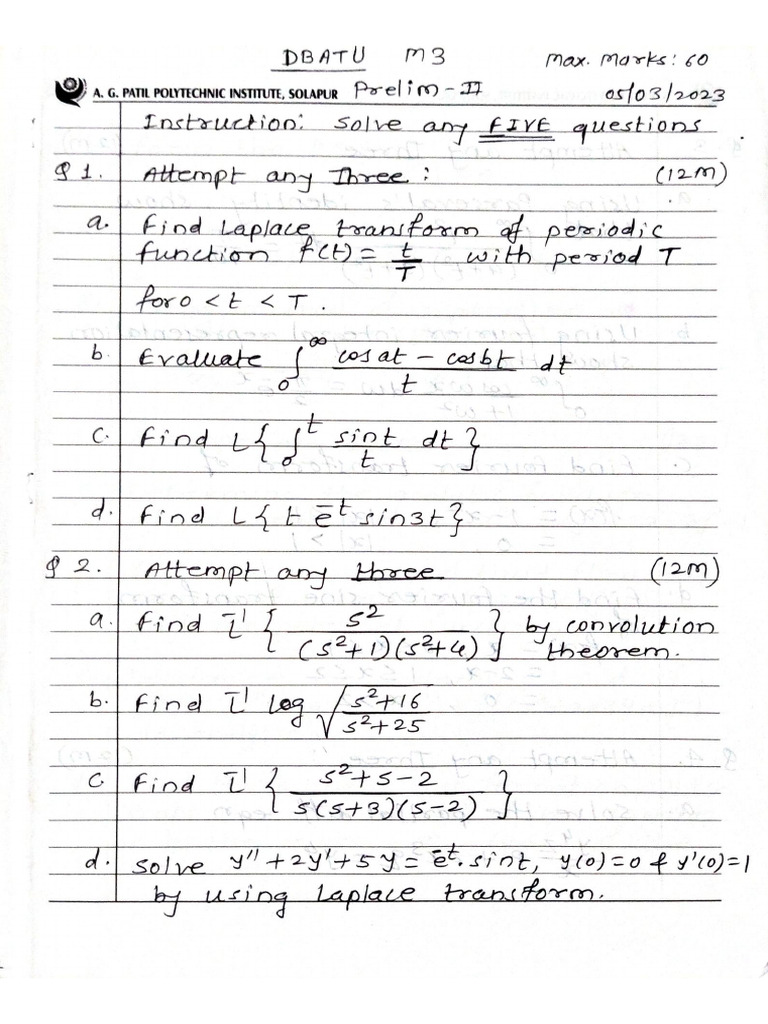 DBATU M3 Max. Marks: 60
A. G. PATIL POLYTECHNIC INSTITUTE, SOLAPUR Prelim-II 05/03/2023
Instruction: Solve any FIVE questions
Q 1. Attempt any Three : (12M)
a. Find Laplace transform of periodic
function f(t) = t/T with period T
for 0 < t < T .
b. Evaluate ∫₀^∞ (cos at - cos bt)/t dt
c. Find L{ ∫₀^t sint/t dt }
d. Find L{ t e^-t sin3t }
Q 2. Attempt any three (12M)
a. Find L^-1 { s²/((s²+1)(s²+4)) } by convolution
theorem.
b. Find L^-1 log √((s²+16)/(s²+25))
c. Find L^-1 { (s²+s-2)/(s(s+3)(s-2)) }
d. Solve y'' + 2y' + 5y = e^-t. sint, y(0)=0 & y'(0)=1
by using Laplace transform.